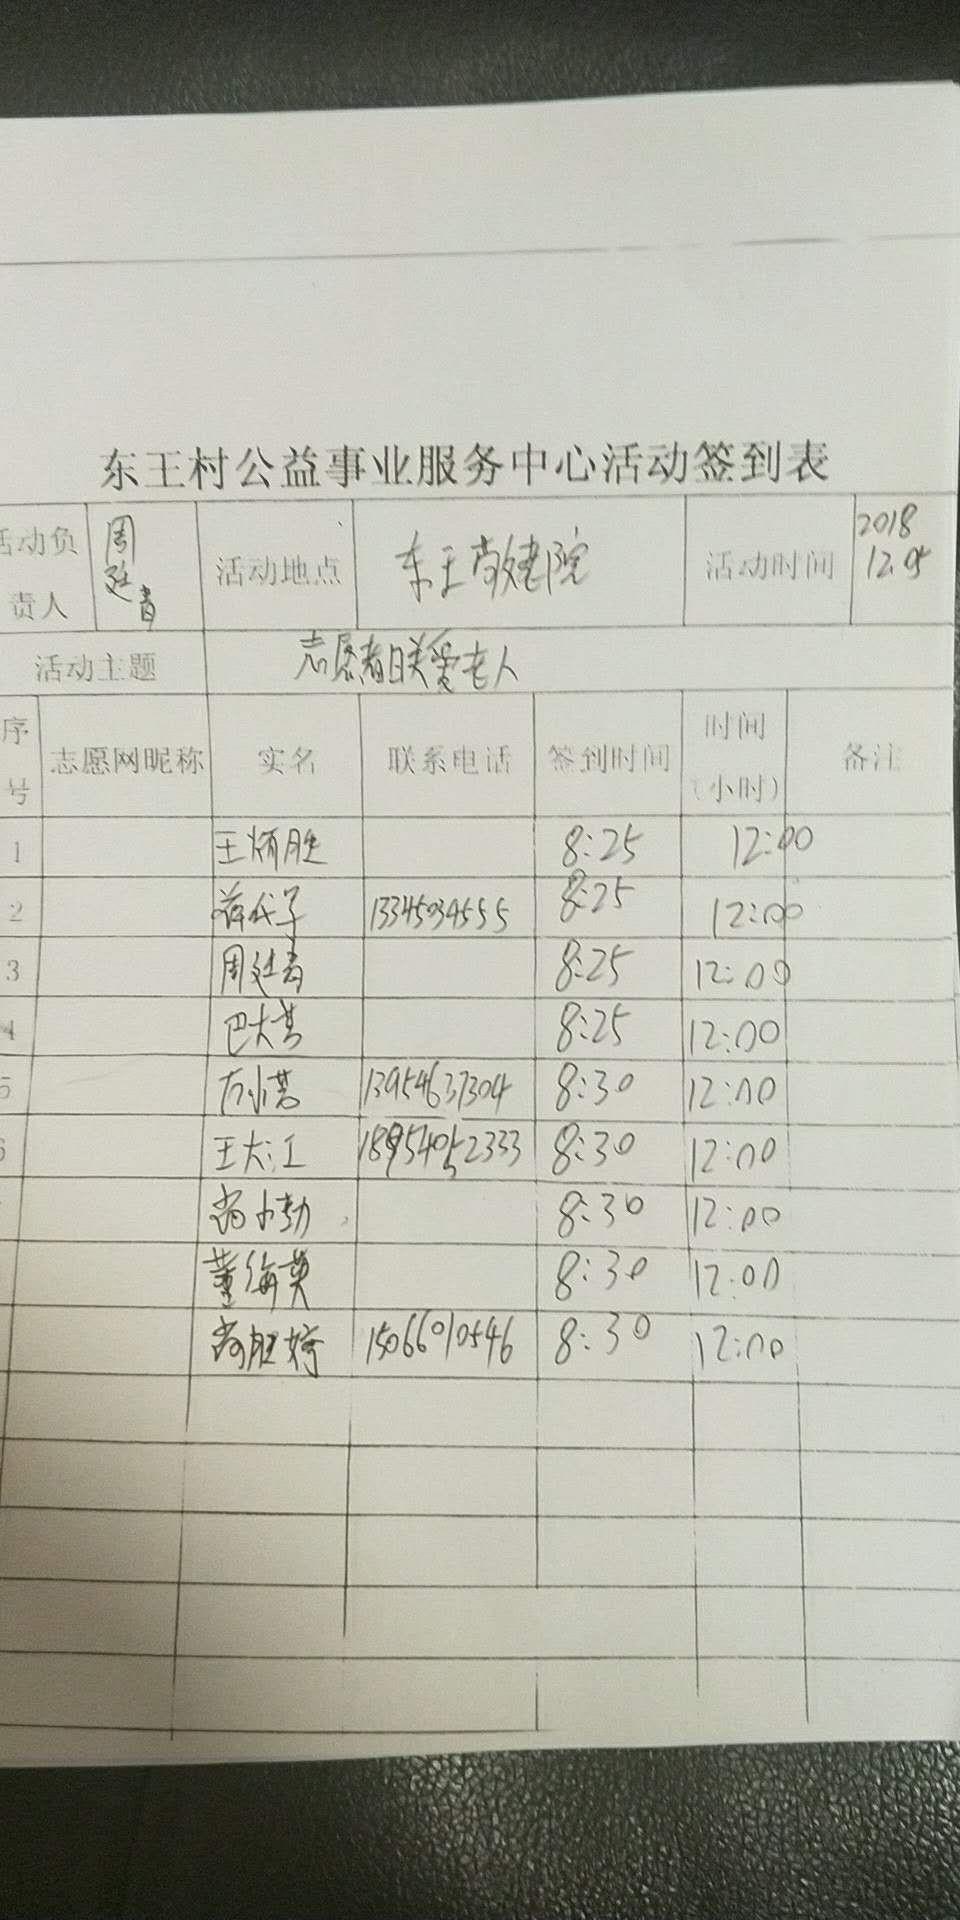 东王村公益事业服务中心活动签到表
活动负责人 周廷青 活动地点 东王敬老院 活动时间 2018 12.05
活动主题 志愿者日关爱老人
序号 志愿网昵称 实名 联系电话 签到时间 时间(小时) 备注
1 王炳胜 8:25 12:00
2 13345034555 8:25 12:00
3 周廷青 8:25 12:00
4 巴大 8:25 12:00
5 13954637304 8:30 12:00
6 王大江 18954052333 8:30 12:00
尚小勤 8:30 12:00
董海英 8:30 12:00
尚胜婷 15066010546 8:30 12:00